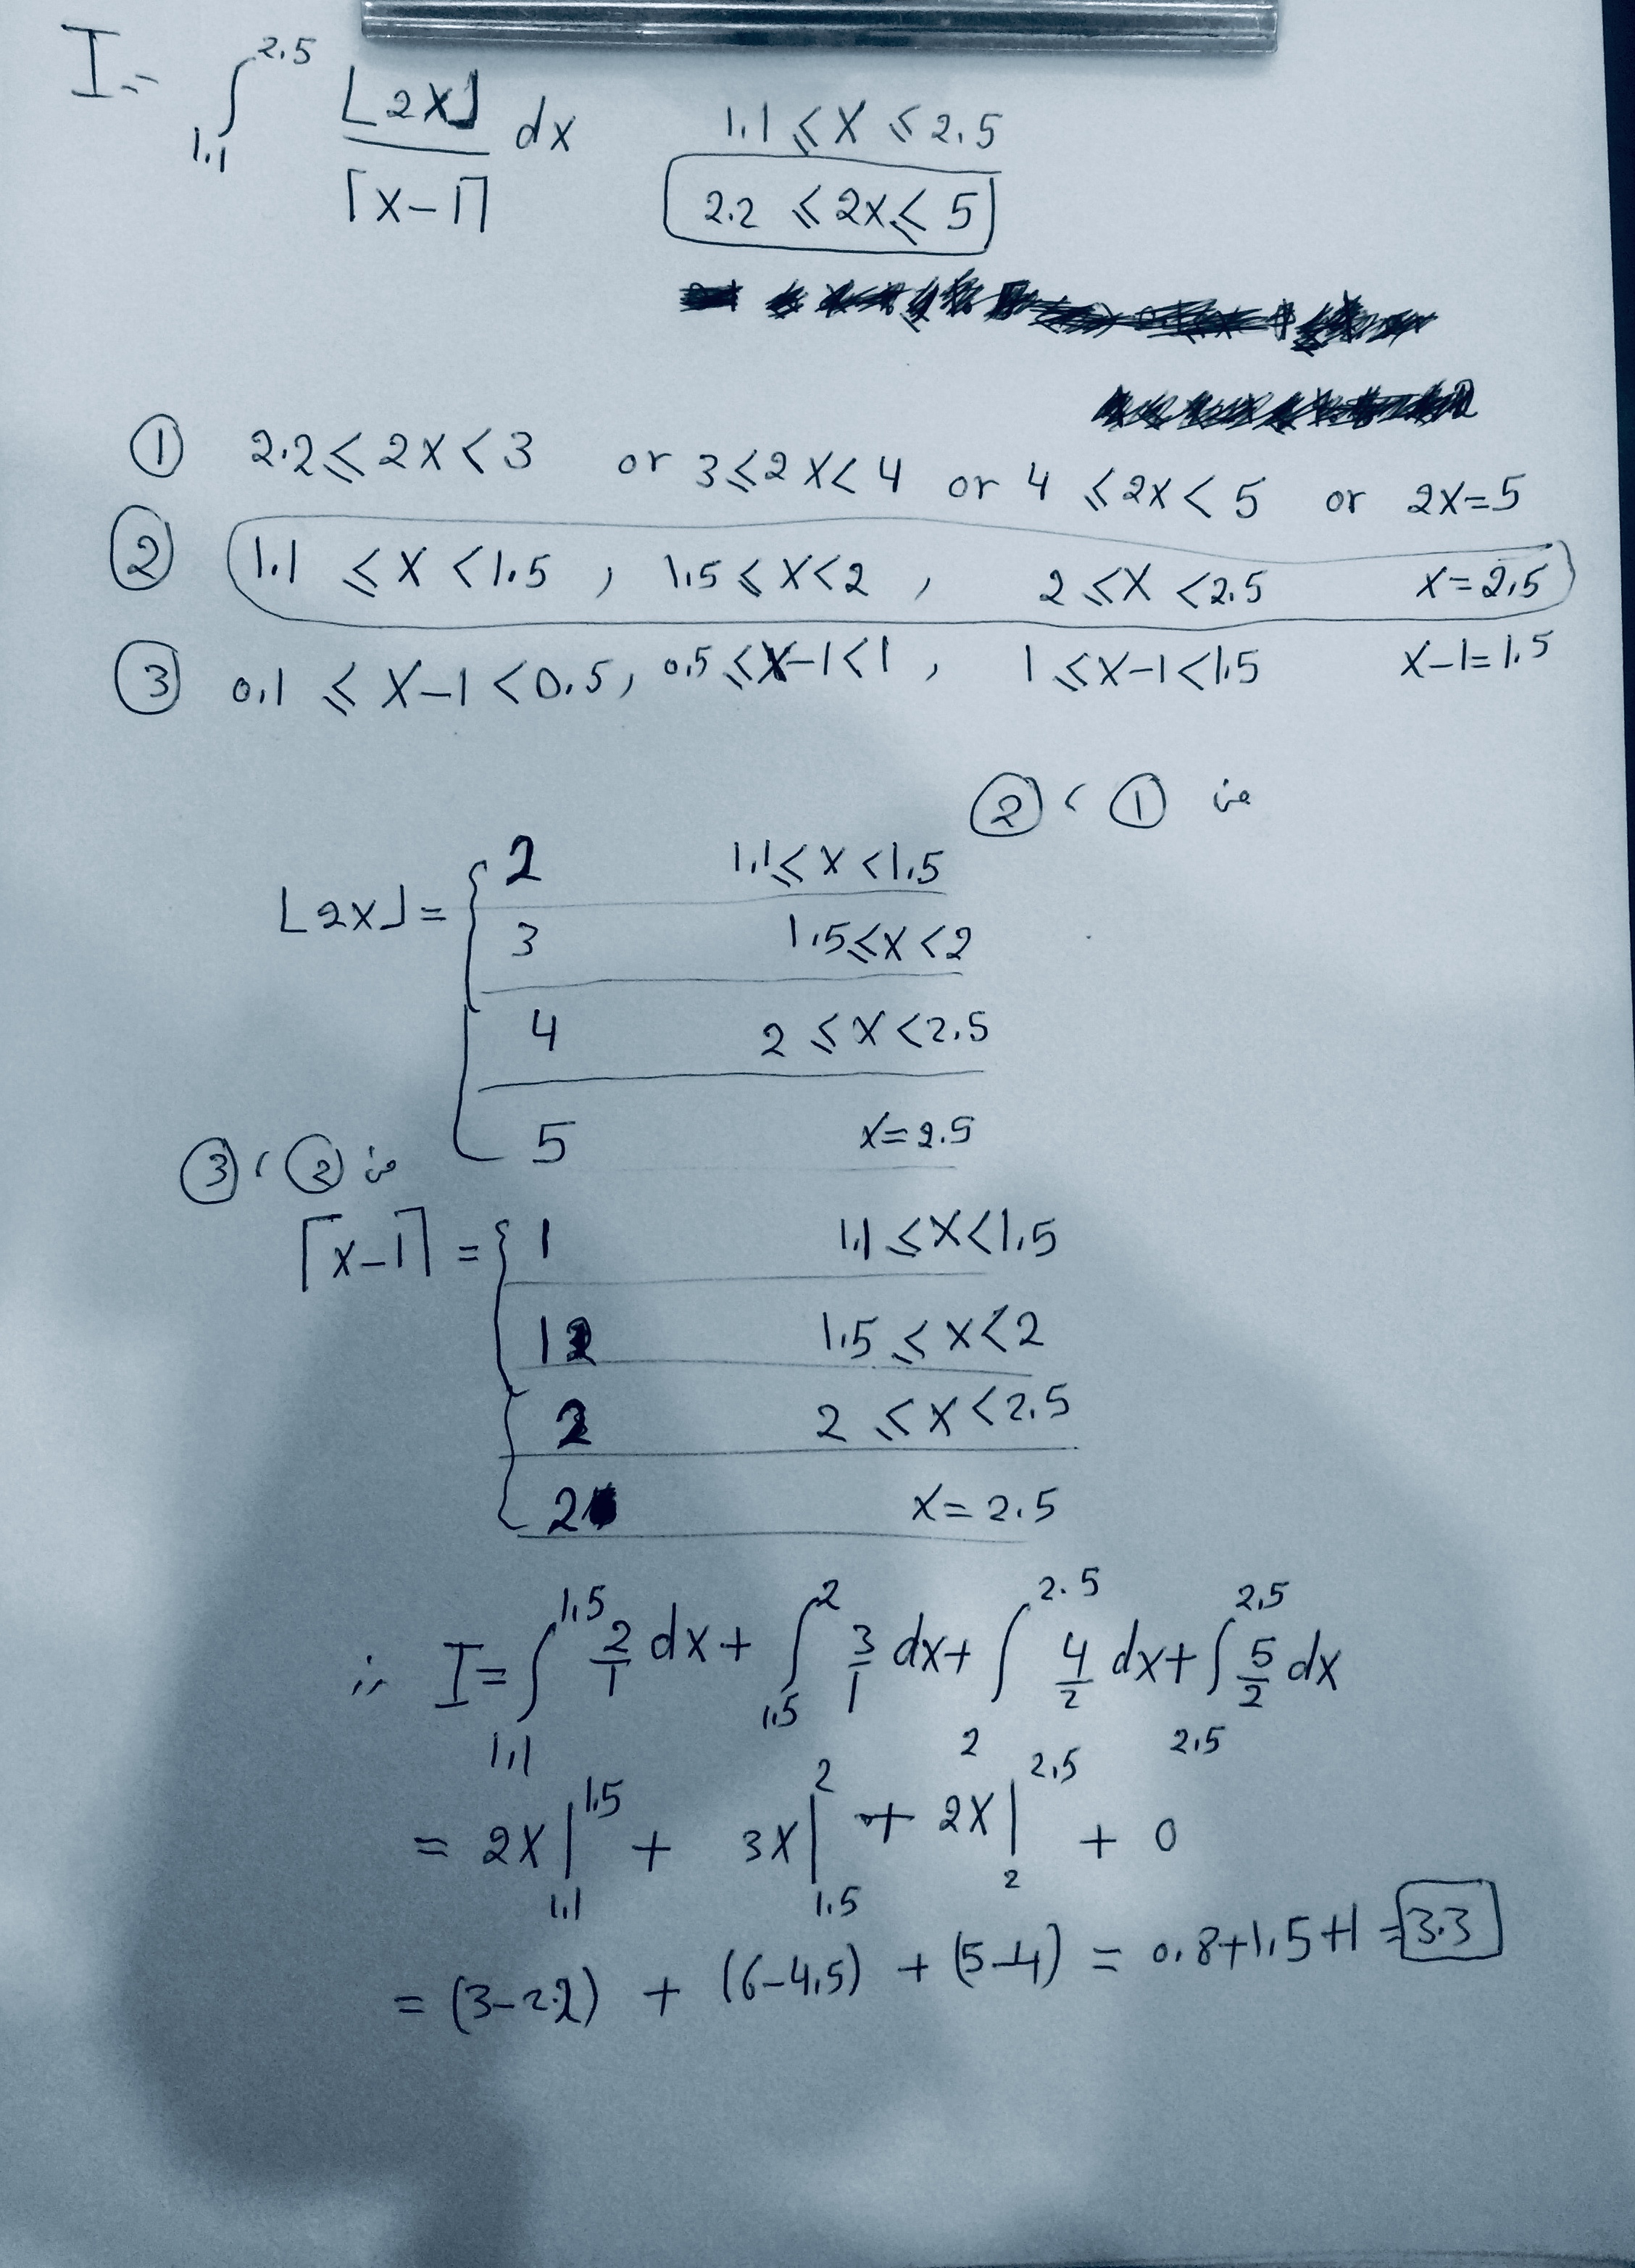 I = ∫_{1.1}^{2.5} ⌊2x⌋/⌈x-1⌉ dx    1.1 ≤ x ≤ 2.5
2.2 ≤ 2x ≤ 5
① 2.2 ≤ 2x < 3 or 3 ≤ 2x < 4 or 4 ≤ 2x < 5 or 2x = 5
② 1.1 ≤ x < 1.5 , 1.5 ≤ x < 2 , 2 ≤ x < 2.5    x = 2.5
③ 0.1 ≤ x-1 < 0.5, 0.5 ≤ x-1 < 1 , 1 ≤ x-1 < 1.5    x-1 = 1.5
من ① ، ②
⌊2x⌋ = { 2    1.1 ≤ x < 1.5
3    1.5 ≤ x < 2
4    2 ≤ x < 2.5
5    x = 2.5
من ② ، ③
⌈x-1⌉ = { 1    1.1 ≤ x < 1.5
1    1.5 ≤ x < 2
2    2 ≤ x < 2.5
2    x = 2.5
∴ I = ∫_{1.1}^{1.5} 2/1 dx + ∫_{1.5}^{2} 3/1 dx + ∫_{2}^{2.5} 4/2 dx + ∫_{2.5}^{2.5} 5/2 dx
= 2x|_{1.1}^{1.5} + 3x|_{1.5}^{2} + 2x|_{2}^{2.5} + 0
= (3-2.2) + (6-4.5) + (5-4) = 0.8+1.5+1 = 3.3